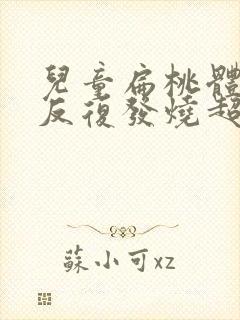 兒童扁桃體
反復發燒超
蘇小可xz